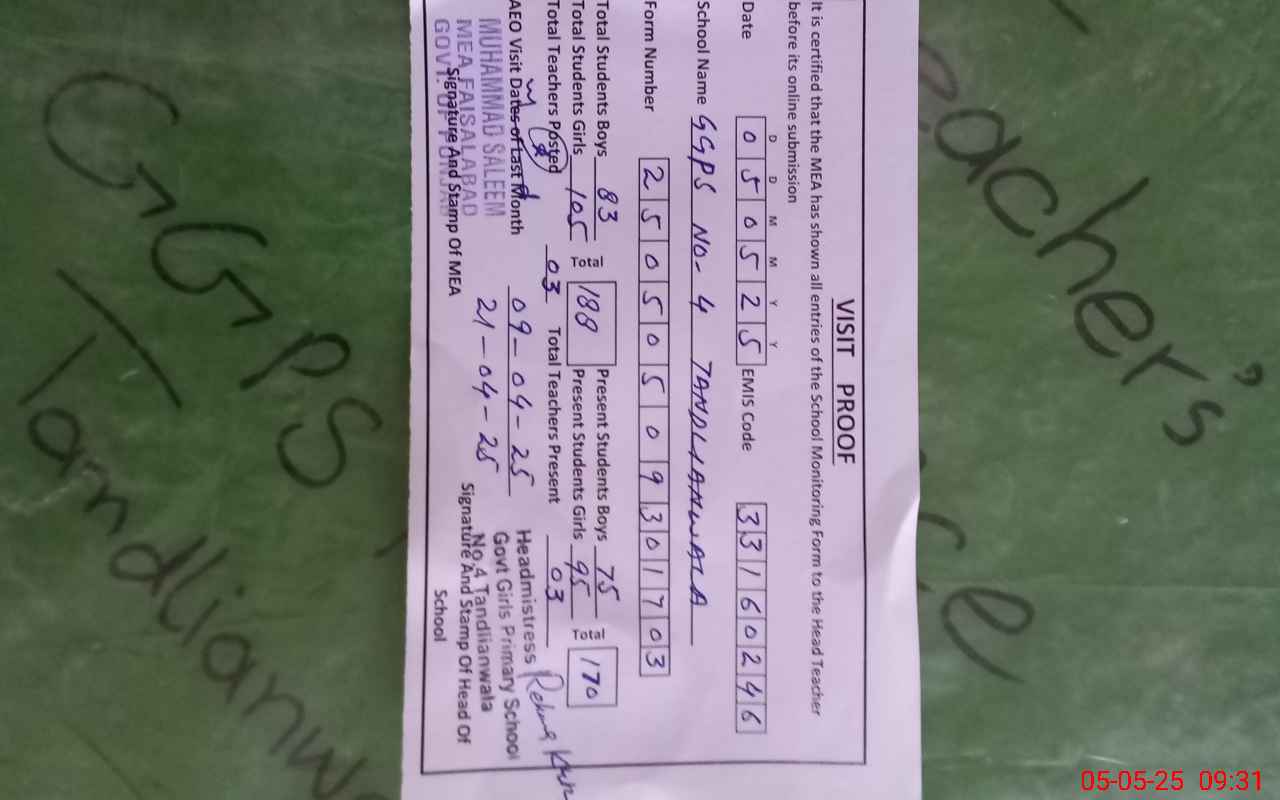 VISIT PROOF
It is certified that the MEA has shown all entries of the School Monitoring Form to the Head Teacher
before its online submission
D D M M Y Y
Date 050525 EMIS Code 33160246
School Name GGPS NO-4 TANDLIANWALA
Form Number 25050509301703
Total Students Boys 83 Total 188 Present Students Boys 75 Total 170
Total Students Girls 105 Present Students Girls 95
Total Teachers Posted 03 Total Teachers Present 03
AEO Visit Dates of Last Month 09-04-25
21-04-25
MUHAMMAD SALEEM
MEA FAISALABAD
GOVT. OF PUNJAB
Signature And Stamp Of MEA
Headmistress
Govt Girls Primary School
No.4 Tandlianwala
Signature And Stamp Of Head Of
School
GGPS
Tandlianw
eacher's
05-05-25 09:31